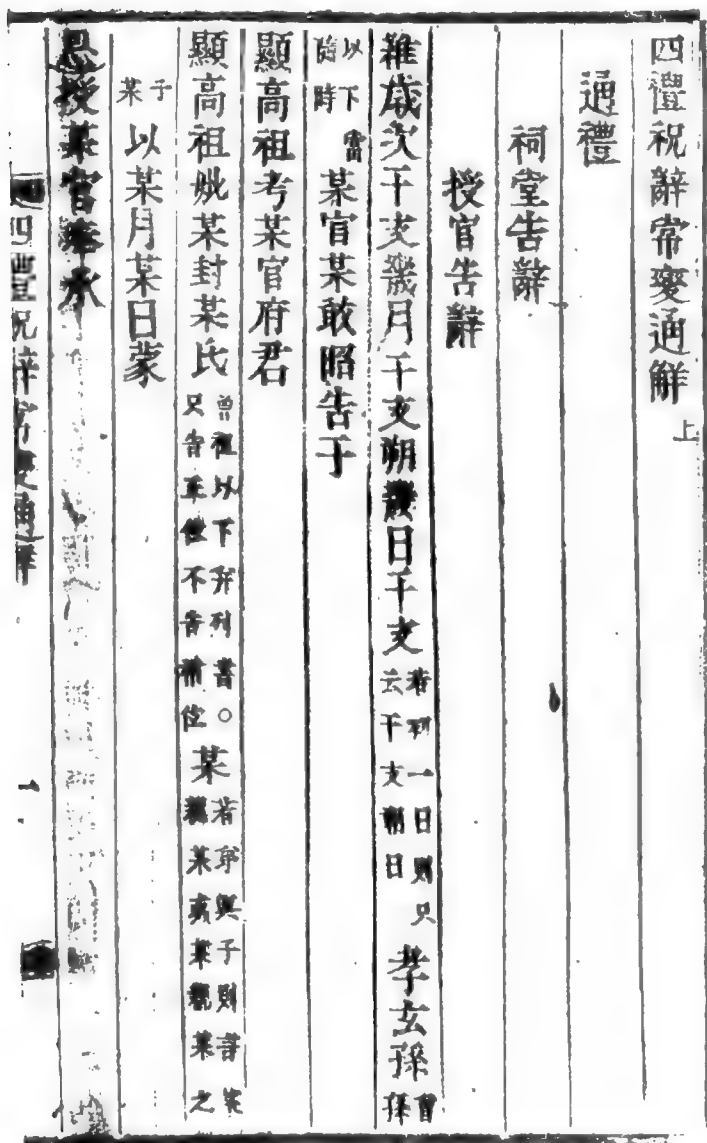 四禮祝辭常變通解 上
通禮
祠堂告辭
授官告辭
維歲次干支幾月干支朔幾日干支 若朔一日則只云干支朔日 孝玄孫 曾孫
以下當隨時 某官某敢昭告于
顯高祖考某官府君
顯高祖妣某封某氏 曾祖以下并列書○只告正位不告祔位 某 若弟與子則書某親某或某親某之
子某 以某月某日蒙
恩授某官奉承
四禮祝辭常變通解 一